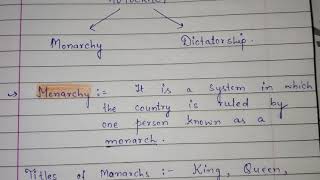 Monarchy Dictatorship.
→ Monarchy :- It is a system in which
the country is ruled by
one person known as a
monarch.
Titles of Monarchs :- King, Queen,